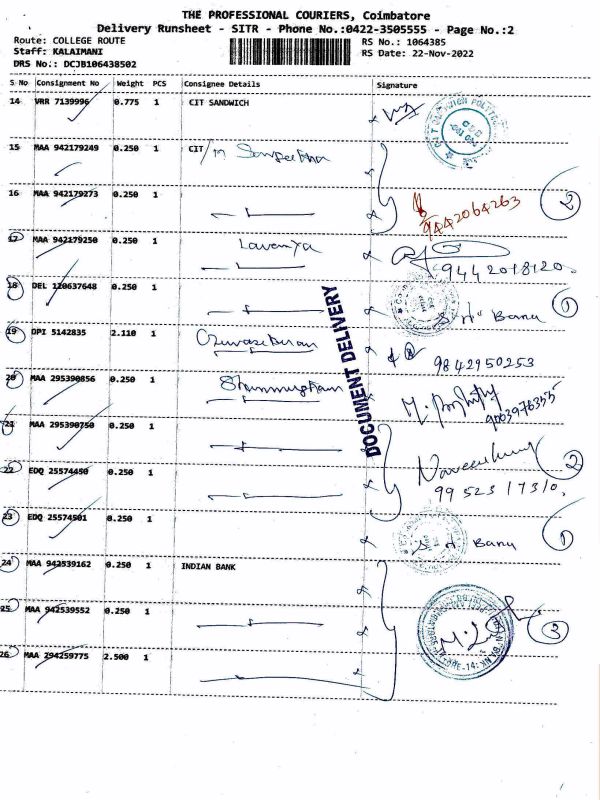 THE PROFESSIONAL COURIERS, Coimbatore
Delivery Runsheet - SITR - Phone No.:0422-3505555 - Page No.:2
Route: COLLEGE ROUTE
RS No.: 1064385
Staff: KALAIMANI
RS Date: 22-Nov-2022
DRS No.: DCJB106438502
S No Consignment No Weight PCS Consignee Details Signature
14 VRR 7139996 0.775 1 CIT SANDWICH
15 MAA 942179249 0.250 1 CIT/
16 MAA 942179273 0.250 1
2
9442064263
17 MAA 942179250 0.250 1 Lavanya
9442018120.
18 DEL 120637648 0.250 1
1
Banu
19 OPI 5142835 2.110 1
9842950253
20 MAA 295390856 0.250 1 Shanmugham
9003976355
DOCUMENT DELIVERY
21 MAA 295390750 0.250 1
2
22 EDQ 25574450 0.250 1
9952317310.
23 EDQ 25574501 0.250 1
Banu 1
24 MAA 942539162 0.250 1 INDIAN BANK
25 MAA 942539552 0.250 1
3
26 MAA 294259775 2.500 1